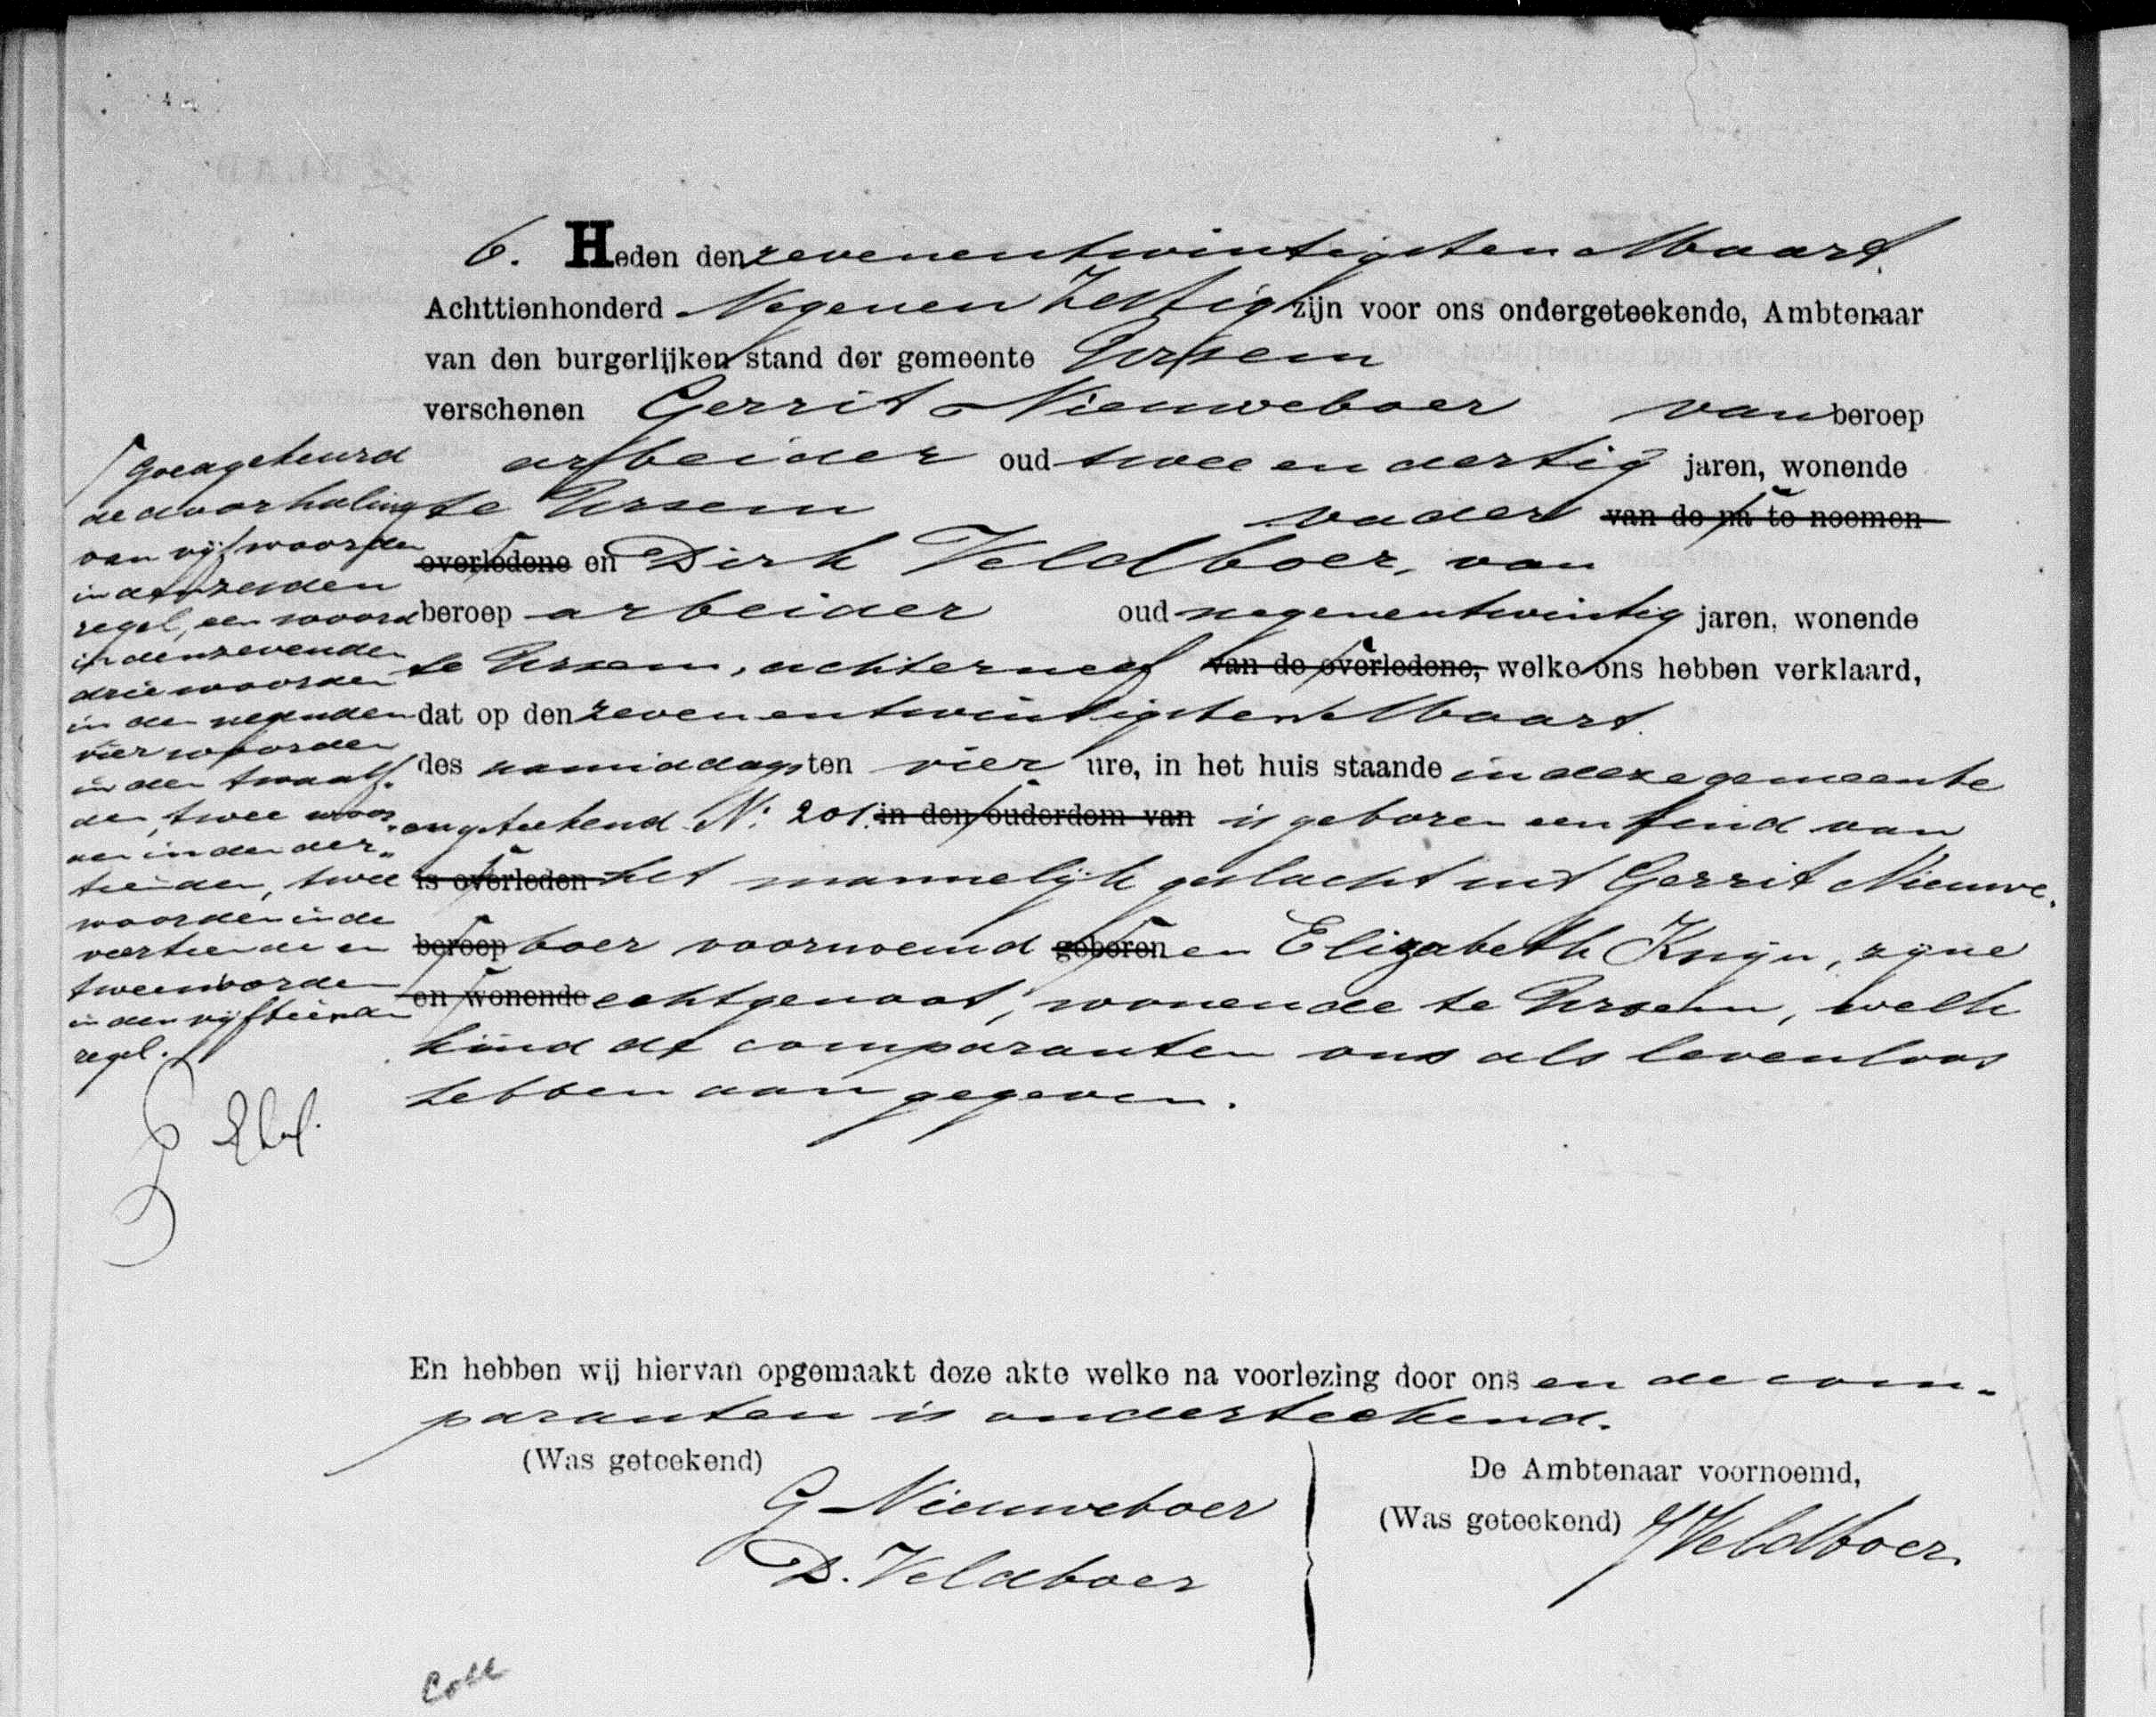 6. Heden den zevenentwintigsten Maart
Achttienhonderd Negenen Zestig zijn voor ons ondergeteekende, Ambtenaar
van den burgerlijken stand der gemeente Ursem
verschenen Gerrit Nieuweboer van beroep
arbeider oud twee en dertig jaren, wonende
te Ursem vader van de na te noemen
overledene en Dirk Veldboer, van
beroep arbeider oud negenentwintig jaren, wonende
te Ursem, achterneef van de overledene, welke ons hebben verklaard,
dat op den zevenentwintigsten Maart
des namiddags ten vier ure, in het huis staande in deze gemeente
ongeteekend N: 201. in den ouderdom van is geboren een kind van
is overleden het mannelijk geslacht uit Gerrit Nieuwe-
beroep boer voornoemd geboren en Elizabeth Knijn, zijne
en wonende echtgenoot, wonende te Ursem, welk
kind de comparanten ons als levenloos
hebben aangegeven.
Goedgekeurd
de doorhaling
van vijf woorden
in den zesden
regel, een woord
in den zevenden
drie woorden
in den negenden
vier woorden
in den twaalf-
den, twee woor-
den in den der-
tienden, twee
woorden in de
veertiende en
twee woorden
in den vijftienden
regel.
En hebben wij hiervan opgemaakt deze akte welke na voorlezing door ons en de com-
paranten is onderteekend.
(Was geteekend)
G Nieuweboer
D. Veldboer
De Ambtenaar voornoemd,
(Was geteekend) Veldboer
Coll